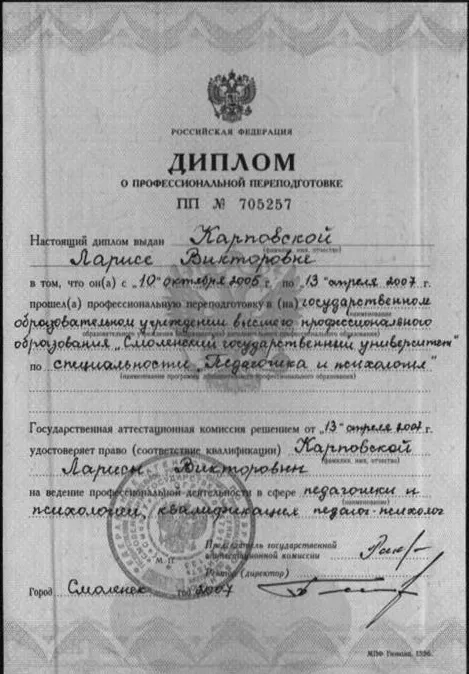 РОССИЙСКАЯ ФЕДЕРАЦИЯ
ДИПЛОМ
О ПРОФЕССИОНАЛЬНОЙ ПЕРЕПОДГОТОВКЕ
ПП № 705257
Настоящий диплом выдан Карповской
(фамилия, имя, отчество)
Ларисе Викторовне
в том, что он(а) с „10" октября 2005 г. по „13" апреля 2007 г.
прошел(а) профессиональную переподготовку в (на) государственном
(наименование
образовательном учреждении высшего профессионального
образовательного учреждения дополнительного профессионального образования)
образования „Смоленский государственный университет"
по специальности „Педагогика и психология"
(наименование программы дополнительного профессионального образования)
Государственная аттестационная комиссия решением от „13" апреля 2007 г.
удостоверяет право (соответствие квалификации) Карповской
(фамилия, имя, отчество)
Ларисы Викторовны
на ведение профессиональной деятельности в сфере педагогики и
(наименование)
психологии, квалификация педагог-психолог
Председатель государственной
аттестационной комиссии
М. П.
Ректор (директор)
Город Смоленск год 2007
МПФ Гознака, 1996.